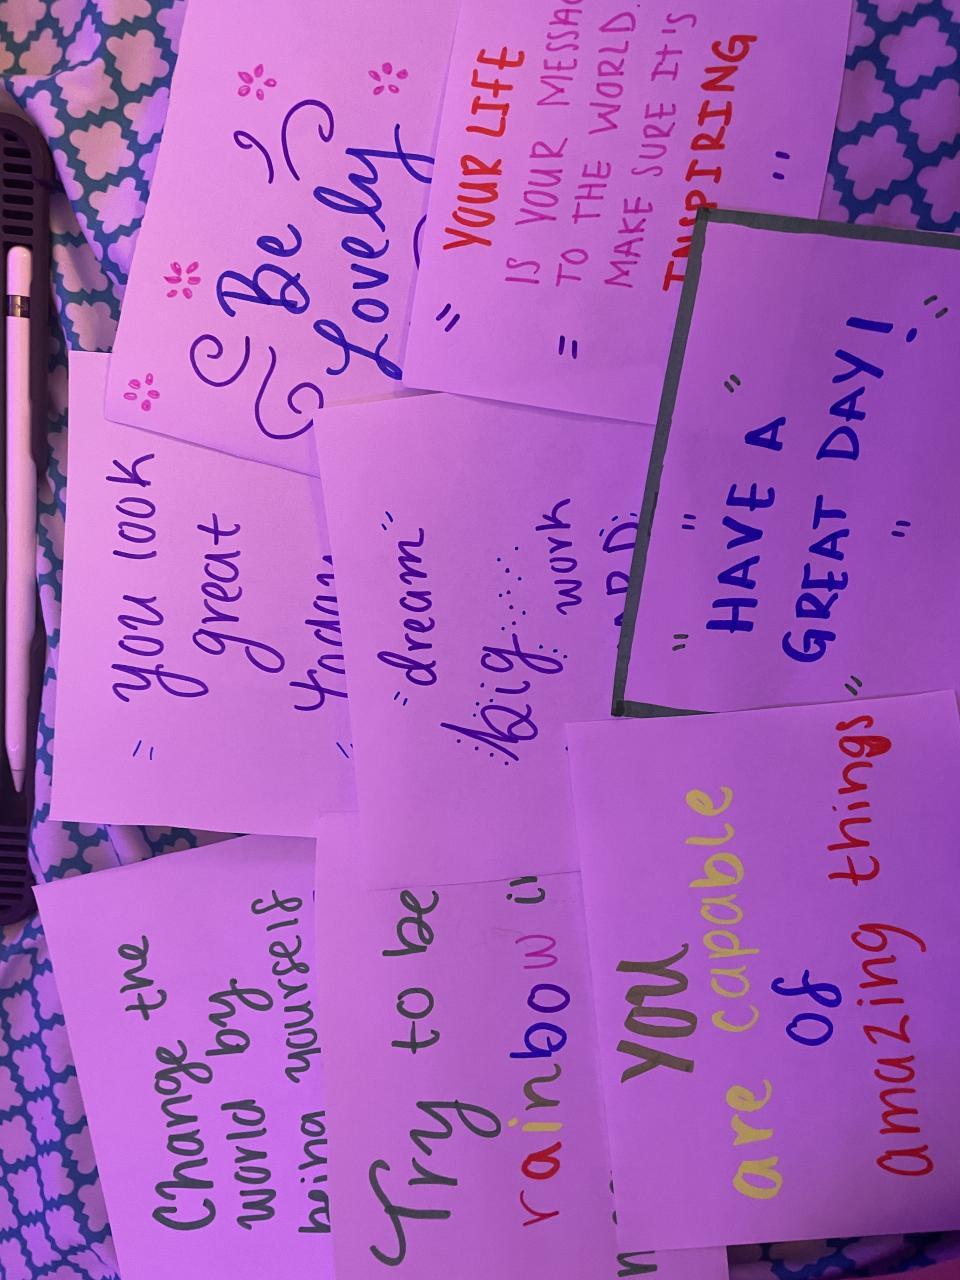 Change the
world by
being yourself
Try to be
rainbow
YOU
are capable
of
amazing things"
"you look
great
today
"dream"
big
work
"HAVE A
GREAT DAY!
Be
Lovely
"YOUR LIFE
IS YOUR
TO THE WORLD.
MAKE SURE IT'S
INSPIRING